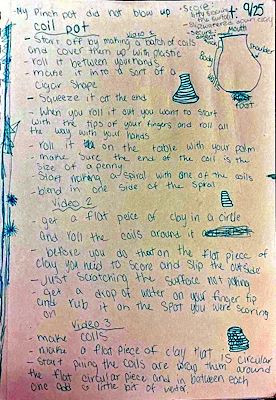 -My Pinch pot did not blow up
- Score
9/25
coil pot
Video 1
Mouth
- Start off by making a batch of coils
and cover them up with plastic
- roll it between your hands
- make it into a sort of a
cigar shape
- Squeeze it at the end
- when you roll it out you want to start
with the tips of your fingers and roll all
the way with your hands
- roll it on the table with your palm
- make sure the end of the coil is the
size of a penny
- Start making a spiral with one of the coils
- blend in one side of the spiral
Shoulder
foot
Video 2
- get a flat piece of clay in a circle
and roll the coils around it
- before you do that on the flat piece of
clay you need to score and slip the outside
- Just scratching the surface not poking
- get a drop of water on your finger tip
and rub it on the spot you were scoring
on
Video 3
- make coils
- make a flat piece of clay that is circular
- start putting the coils are wrap them around
the flat circular piece and in between each
one add a little bit of water.